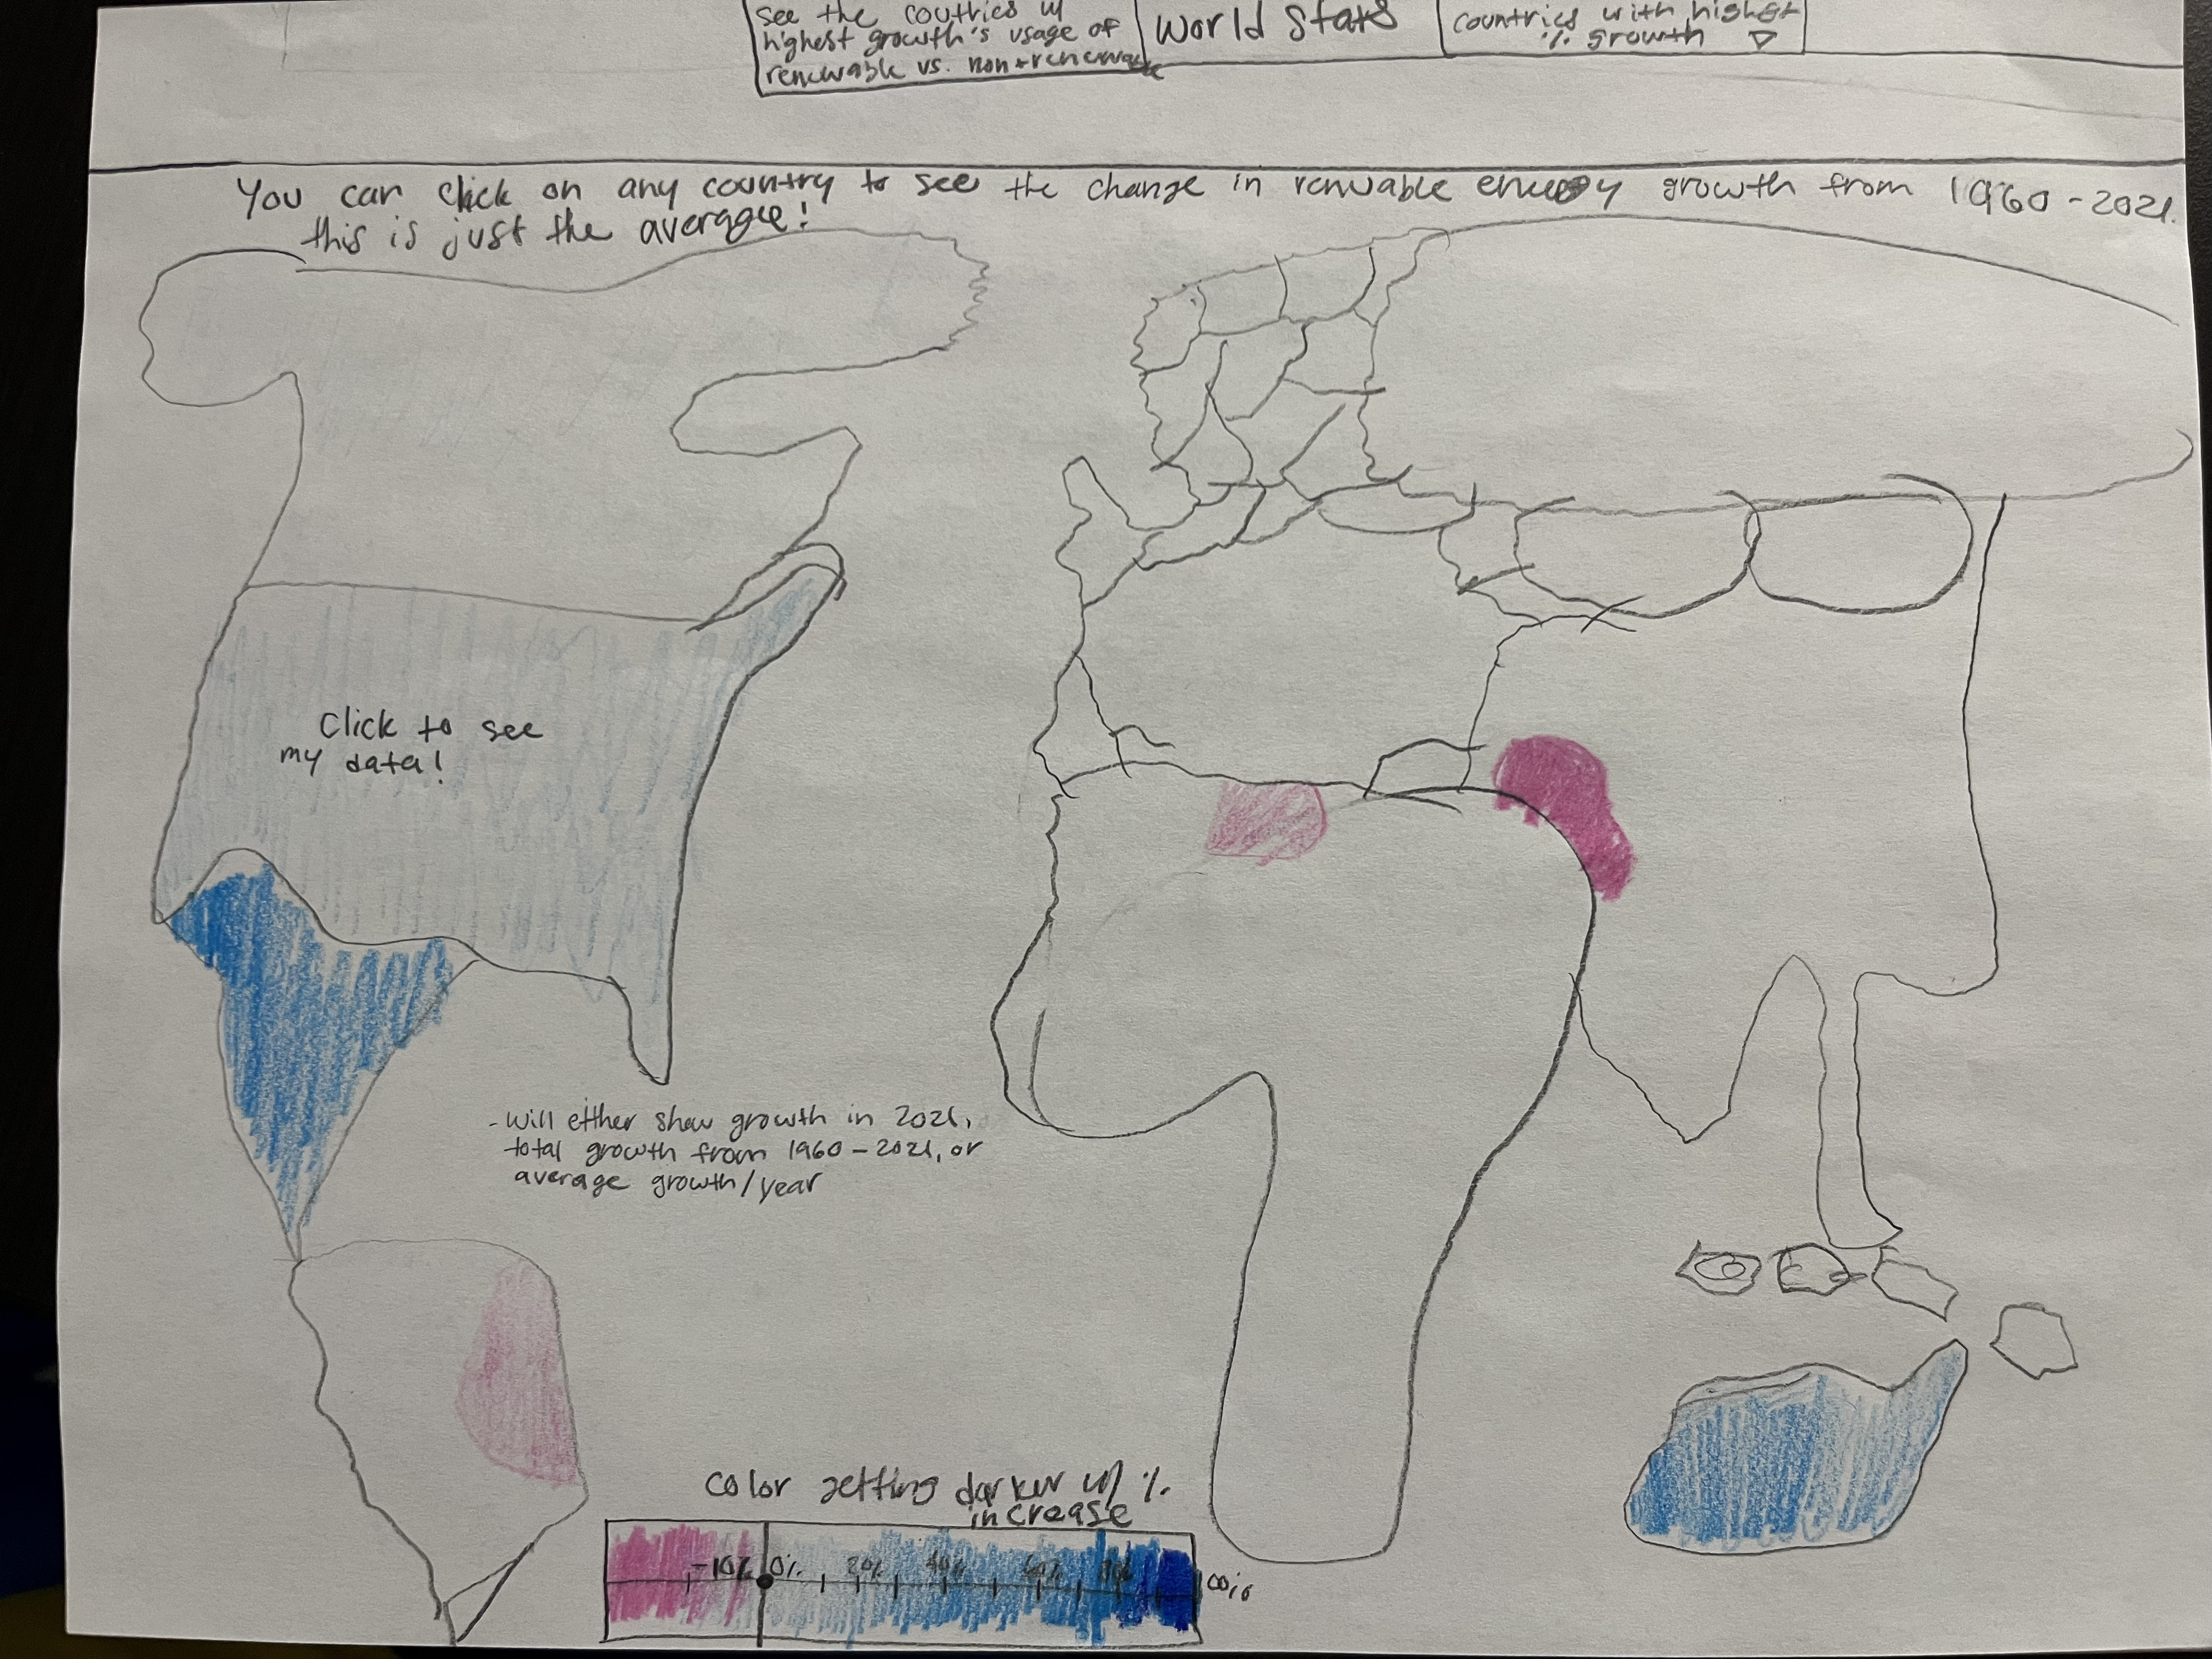 see the coutries w/
highest growth's usage of
renewable vs. non-renewable
World Stats
countries with highest
% growth ▽
You can click on any country to see the change in renwable energy growth from 1960-2021.
this is just the average!
Click to see
my data!
- will either show growth in 2021,
total growth from 1960-2021, or
average growth/year
color getting darker w/ %
increase
-10% 0% 20% 40% 60%